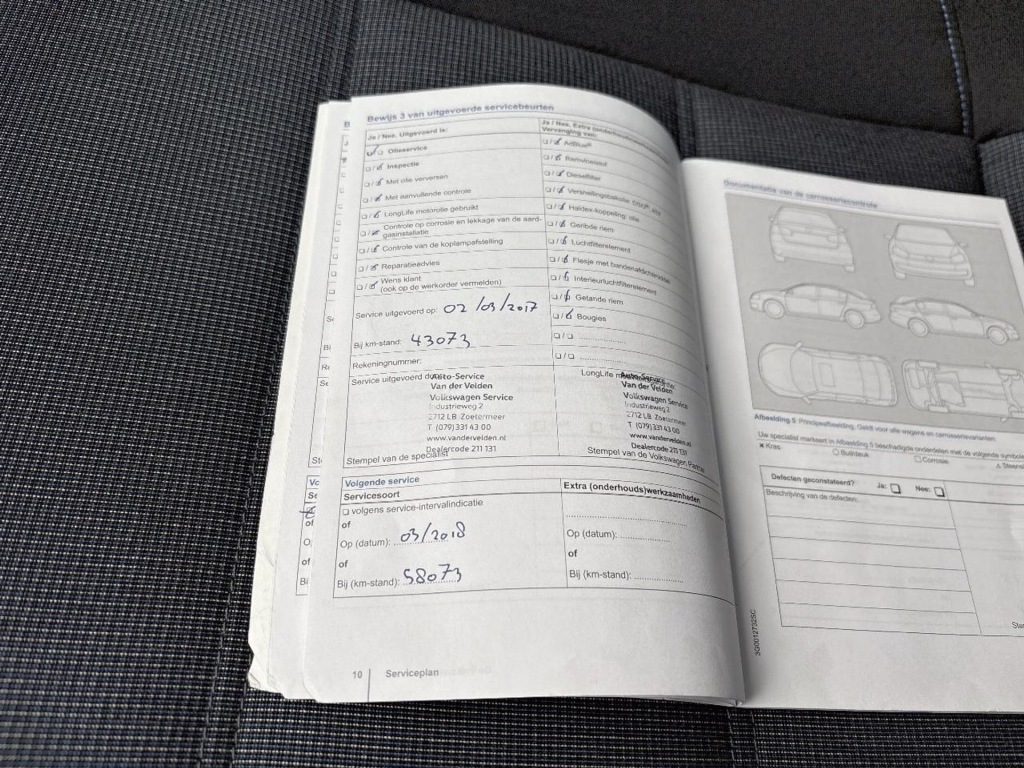 Bewijs 3 van uitgevoerde servicebeurten
Ja / Nee, Uitgevoerd is:
Olieservice
Inspectie
Met olie verversen
Met aanvullende controle
LongLife motorolie gebruikt
Controle op corrosie en lekkage van de aard-
gasinstallatie
Controle van de koplampafstelling
Reparatieadvies
Wens klant
(ook op de werkorder vermelden)
Service uitgevoerd op: 02/03/2017
Bij km-stand: 43073
Rekeningnummer:
Service uitgevoerd door:
Auto-Service
Van der Velden
Volkswagen Service
Industrieweg 2
2712 LB Zoetermeer
T (079) 331 43 00
www.vandervelden.nl
Dealercode 211 131
Stempel van de specialist
Ja / Nee, Extra (onderhouds)
Vervanging van:
AdBlue®
Remvloeistof
Dieselfilter
Versnellingsbakolie
Haldex-koppeling: olie
Geribde riem
Luchtfilterelement
Flesje met bandenafdichtmiddel
Interieurluchtfilterelement
Getande riem
Bougies
LongLife
Auto-Service
Van der Velden
Volkswagen Service
Industrieweg 2
2712 LB Zoetermeer
T (079) 331 43 00
www.vandervelden.nl
Dealercode 211 131
Stempel van de Volkswagen Partner
Volgende service
Servicesoort
volgens service-intervalindicatie
of
Op (datum): 03/2018
of
Bij (km-stand): 58073
Extra (onderhouds)werkzaamheden
Op (datum):
of
Bij (km-stand):
10 Serviceplan
Documentatie van de carrosseriecontrole
Afbeelding 5 Principeafbeelding: Geldt voor alle wagens en carrosserievarianten.
Uw specialist markeert in Afbeelding 5 beschadigde onderdelen met de volgende
Kras
Buil/deuk
Corrosie
Defecten geconstateerd? Ja: Nee:
Beschrijving van de defecten: